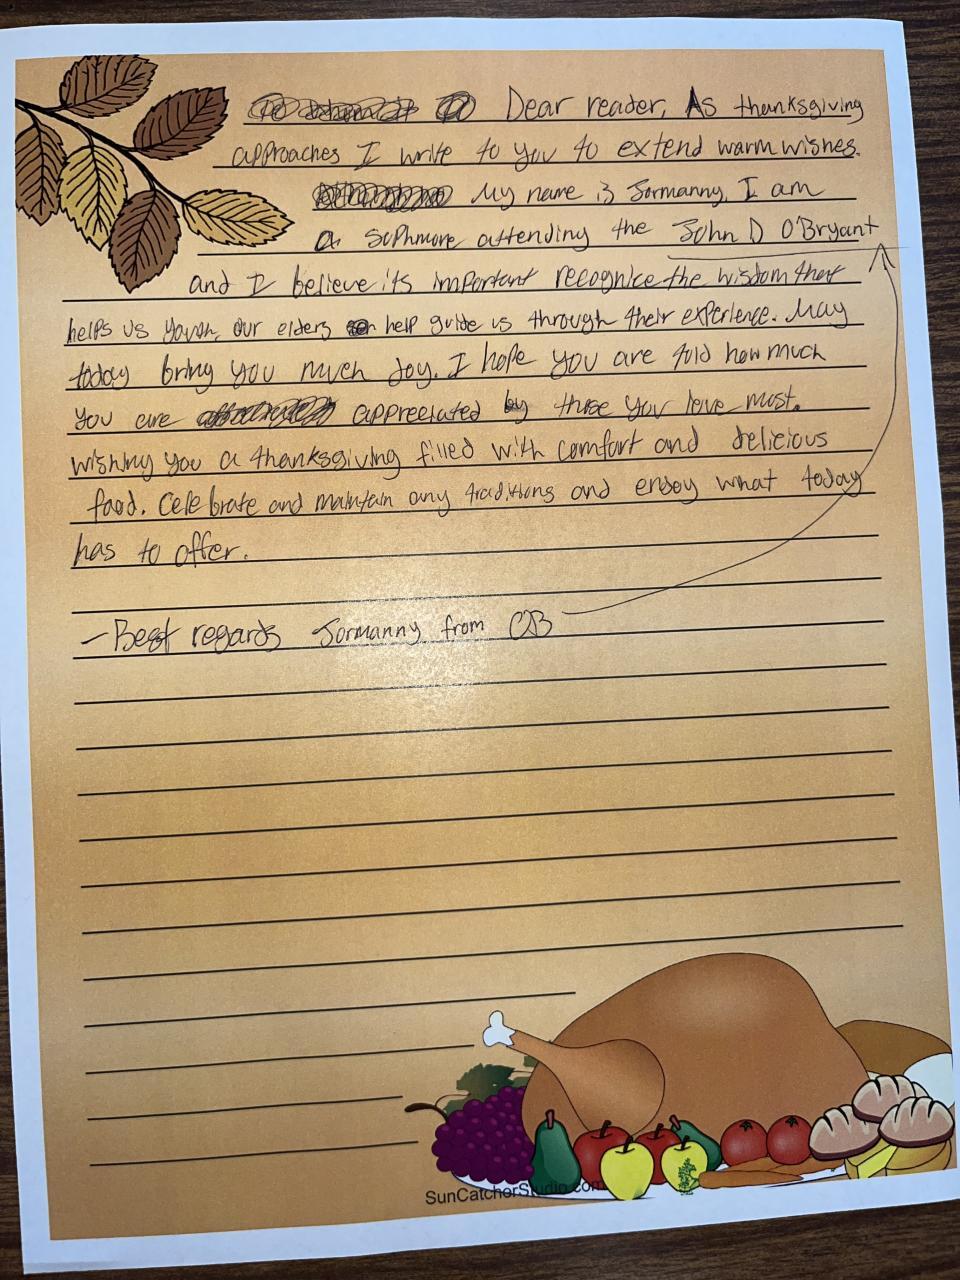 Dear reader, As thanksgiving
approaches I write to you to extend warm wishes.
My name is Jormanny, I am
a sophmore attending the John D O'Bryant
and I believe its important recognice the wisdom that
helps us youth, our elders help guide us through their experience. May
today bring you much Joy. I hope you are told how much
you are appreciated by those you love most.
wishing you a thanksgiving filled with comfort and delicious
food. Celebrate and maintain any traditions and enjoy what today
has to offer.
- Best regards Jormanny from OB
SunCatcherStudio.com